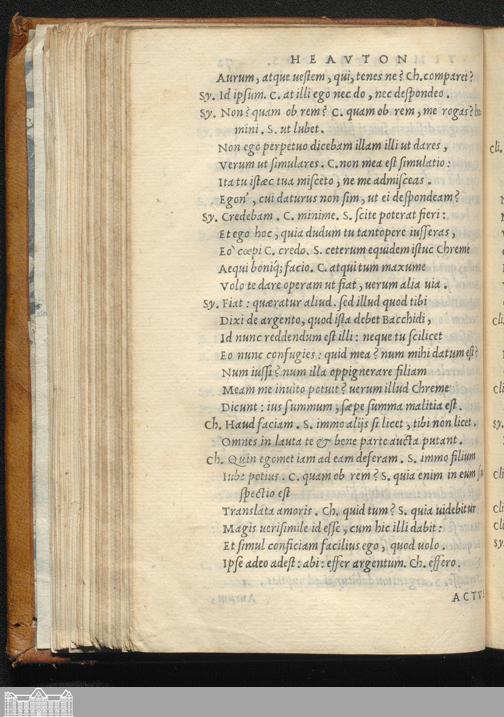 HEAVTON
Aurum, atque uestem, qui, tenes ne? Ch. comparet?
Sy. Id ipsum. C. at illi ego nec do, nec despondeo.
Sy. Non? quam ob rem? C. quam ob rem, me rogas?
mini. S. ut lubet.
Non ego perpetuo dicebam illam illi ut dares,
Verum ut simulares. C. non mea est simulatio:
Ita tu istæc tua misceto, ne me admisceas.
Egon', cui daturus non sim, ut ei despondeam?
Sy. Credebam. C. minime. S. scite poterat fieri:
Et ego hoc, quia dudum tu tantopere iusseras,
Eo` cœpi C. credo. S. ceterum equidem istuc Chreme
Aequi boniq; facio. C. atqui tum maxume
Volo te dare operam ut fiat, uerum alia uia.
Sy. Fiat: quæratur aliud. sed illud quod tibi
Dixi de argento, quod ista debet Bacchidi,
Id nunc reddendum est illi: neque tu scilicet
Eo nunc confugies: quid mea? num mihi datum est?
Num iussi? num illa oppignerare filiam
Meam me inuito potuit? uerum illud Chreme
Dicunt: ius summum, sæpe summa malitia est.
Ch. Haud faciam. S. immo alijs si licet, tibi non licet.
Omnes in lauta te & bene parte aucta putant.
Ch. Quin egomet iam ad eam deferam. S. immo filium
Iube potius. C. quam ob rem? S. quia enim in eum
spectio est
Translata amoris. Ch. quid tum? S. quia uidebitur
Magis uerisimile id esse, cum hic illi dabit:
Et simul conficiam facilius ego, quod uolo.
Ipse adeo adest: abi: effer argentum. Ch. effero.
ACTV
cli.
cli
cli
sy.
cli
cli
sy.